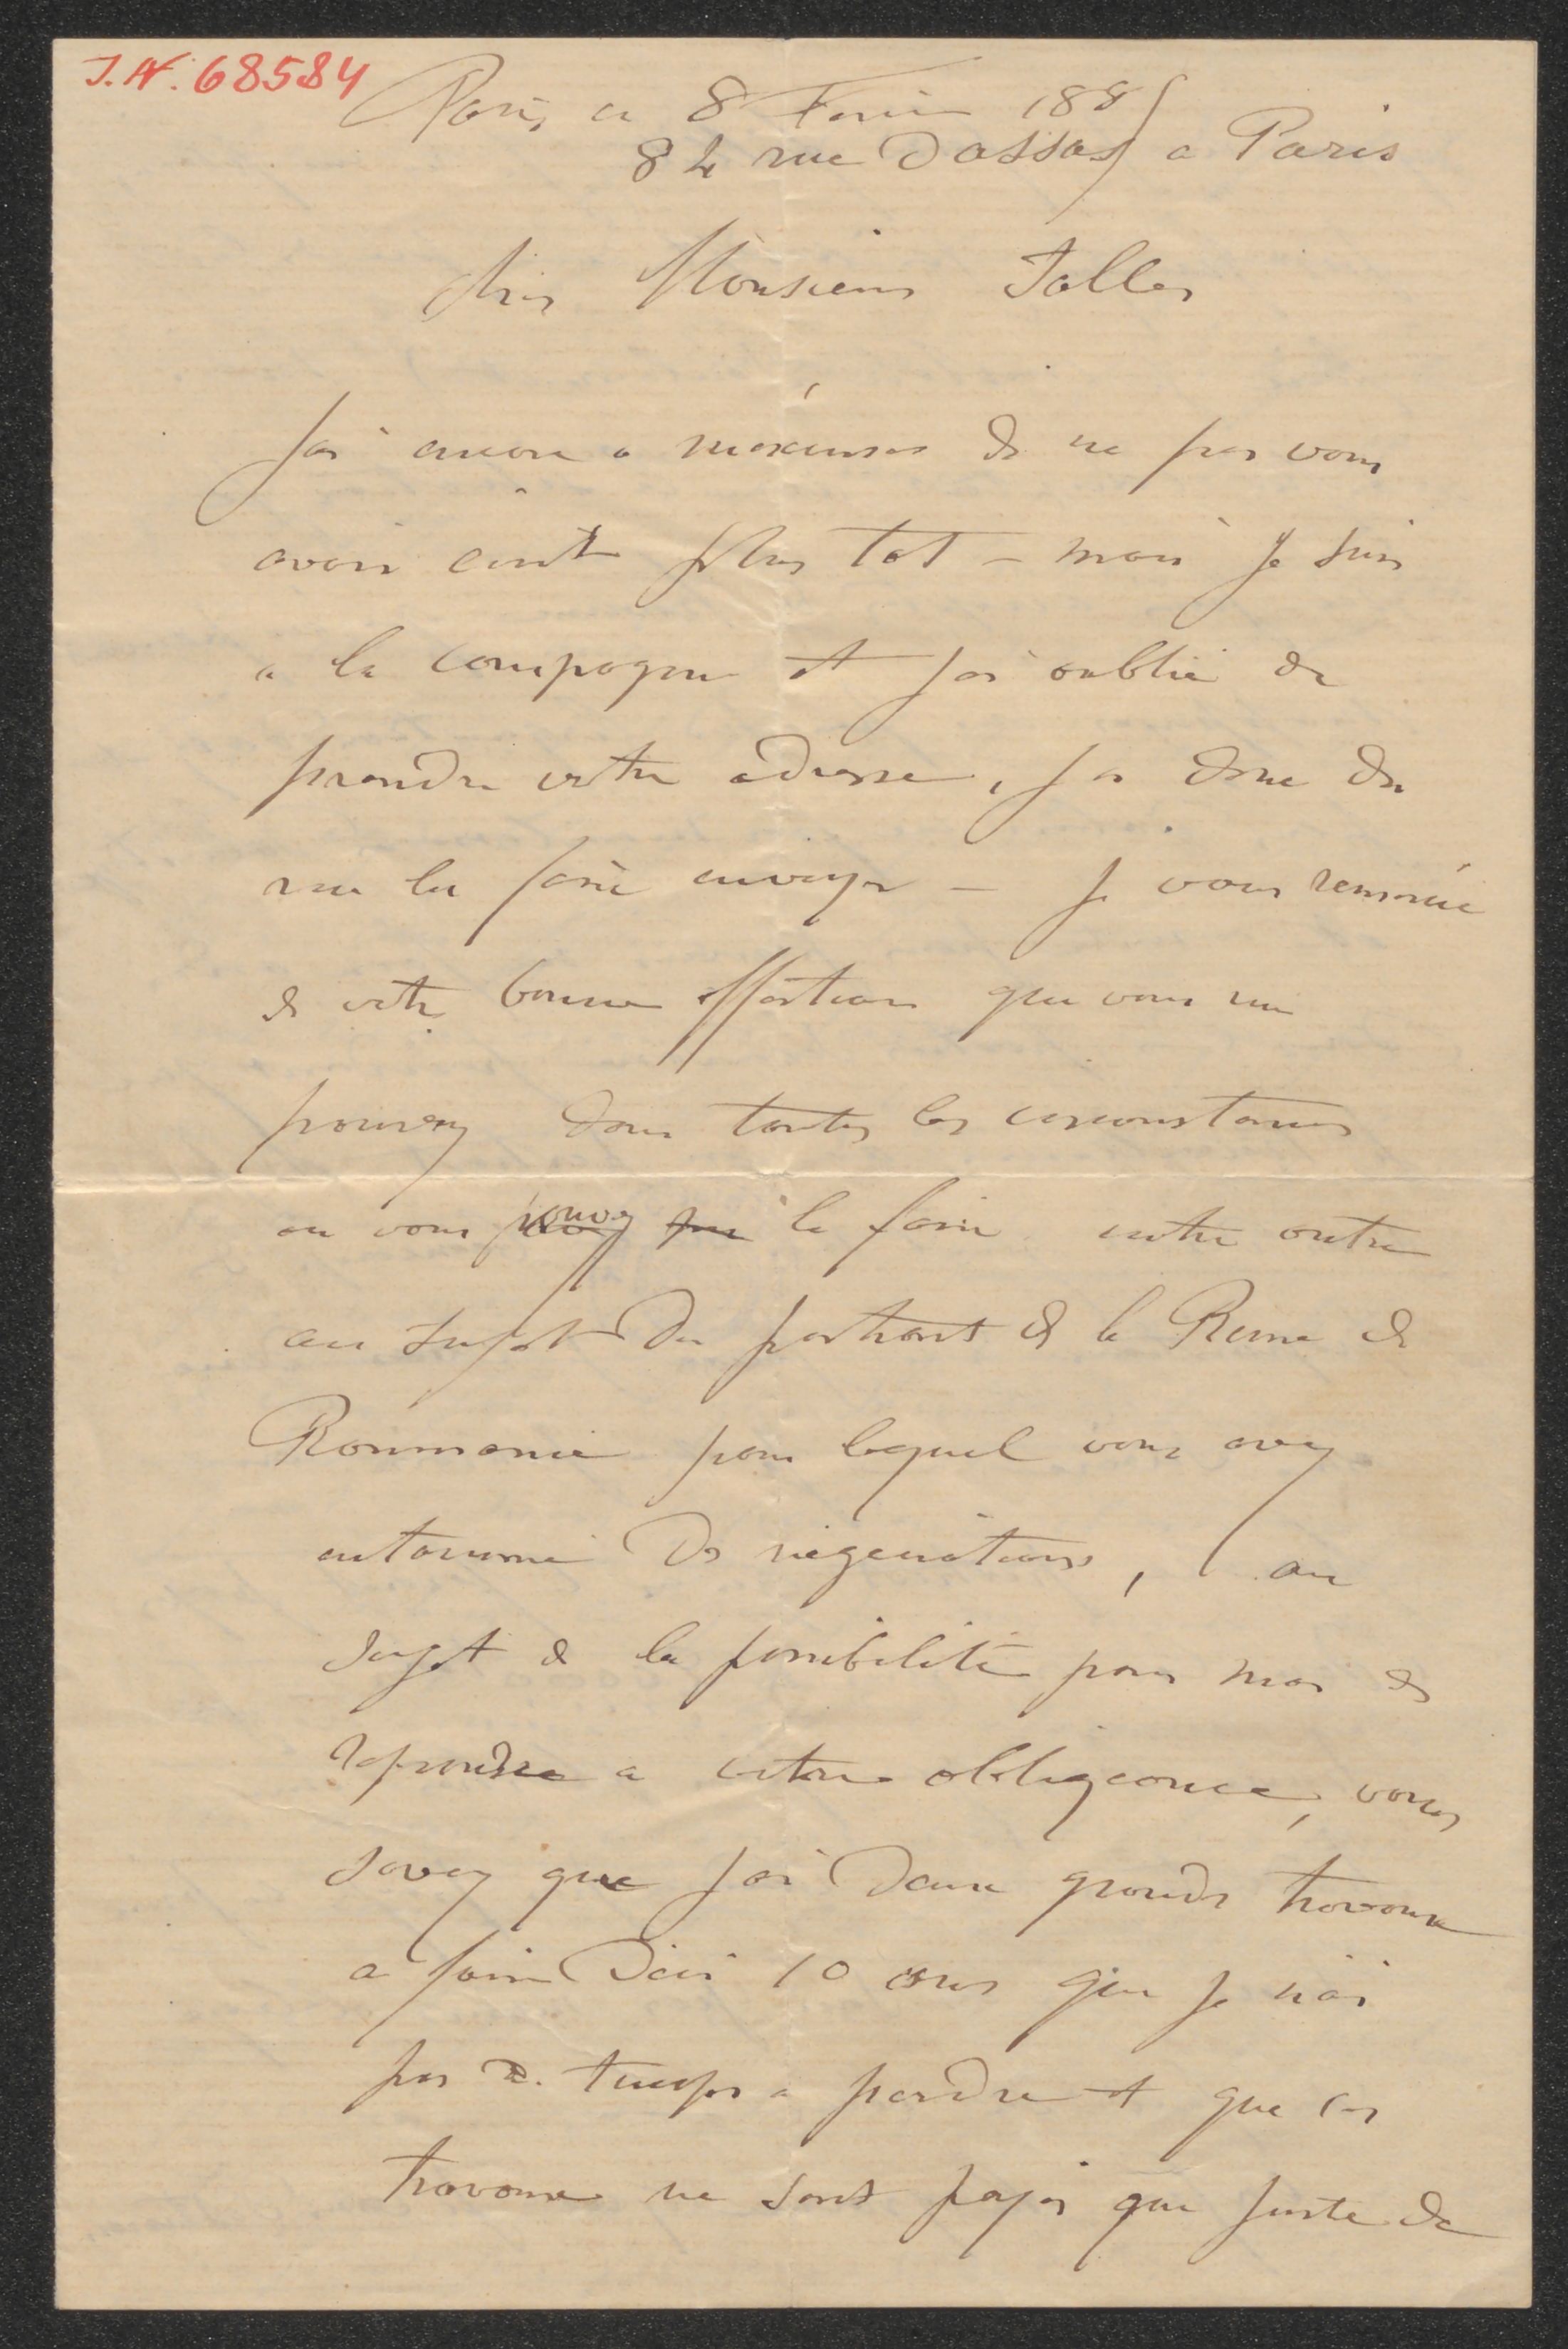 I.N. 68584
Paris, ce 8 Fevrier 1885
84 rue Dassas a Paris
Cher Monsieur
Jai encore a m'excuser de ne pas vous
avoir ecrit plus tot – mais je suis
a la campagne et jai oublié de
prendre votre adresse, jai donc du
me la faire envoyer – Je vous remercie
de votre bonne affection que vous me
prouvez dans toutes les circonstances
ou vous pouvez le faire entre autre
au sujet du portrait de la Reine de
Roumanie pour lequel vous avez
entammé des négociations, au
sujet de la possibilité pour moi de
repondre a votre obligeance, vous
savez que jai deux grands travaux
a faire dici 10 ans que je nai
pas de temps a perdre et que ces
travaux ne sont payés que juste de